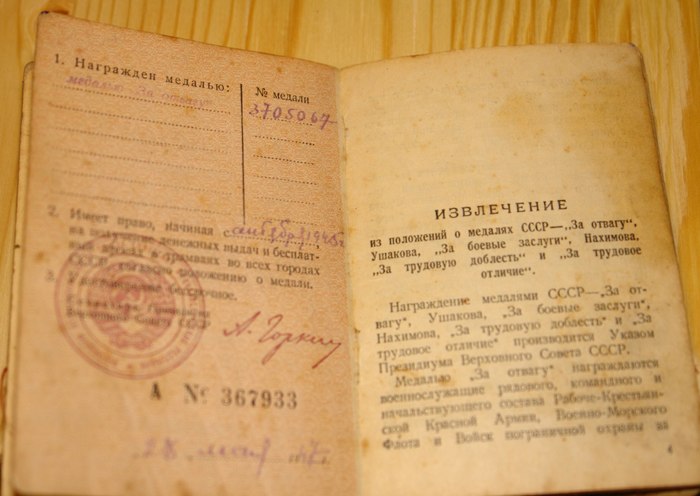 1. Награжден медалью:
медалью „За отвагу“
№ медали
3705067
2. Имеет право, начиная с
1945г.
на получение денежных выдач и бесплат-
ный проезд в трамваях во всех городах
СССР, согласно положению о медали.
3. Удостоверение бессрочное.
Секретарь Президиума
Верховного Совета СССР
А. Горкин
А № 367933
28
ИЗВЛЕЧЕНИЕ
из положений о медалях СССР—„За отвагу“,
Ушакова, „За боевые заслуги“, Нахимова,
„За трудовую доблесть“ и „За трудовое
отличие“.
Награждение медалями СССР—„За от-
вагу“, Ушакова, „За боевые заслуги“,
Нахимова, „За трудовую доблесть“ и „За
трудовое отличие“ производится Указом
Президиума Верховного Совета СССР.
Медалью „За отвагу“ награждаются
военнослужащие рядового, командного и
начальствующего состава Рабоче-Крестьян-
ской Красной Армии, Военно-Морского
Флота и Войск пограничной охраны за
4